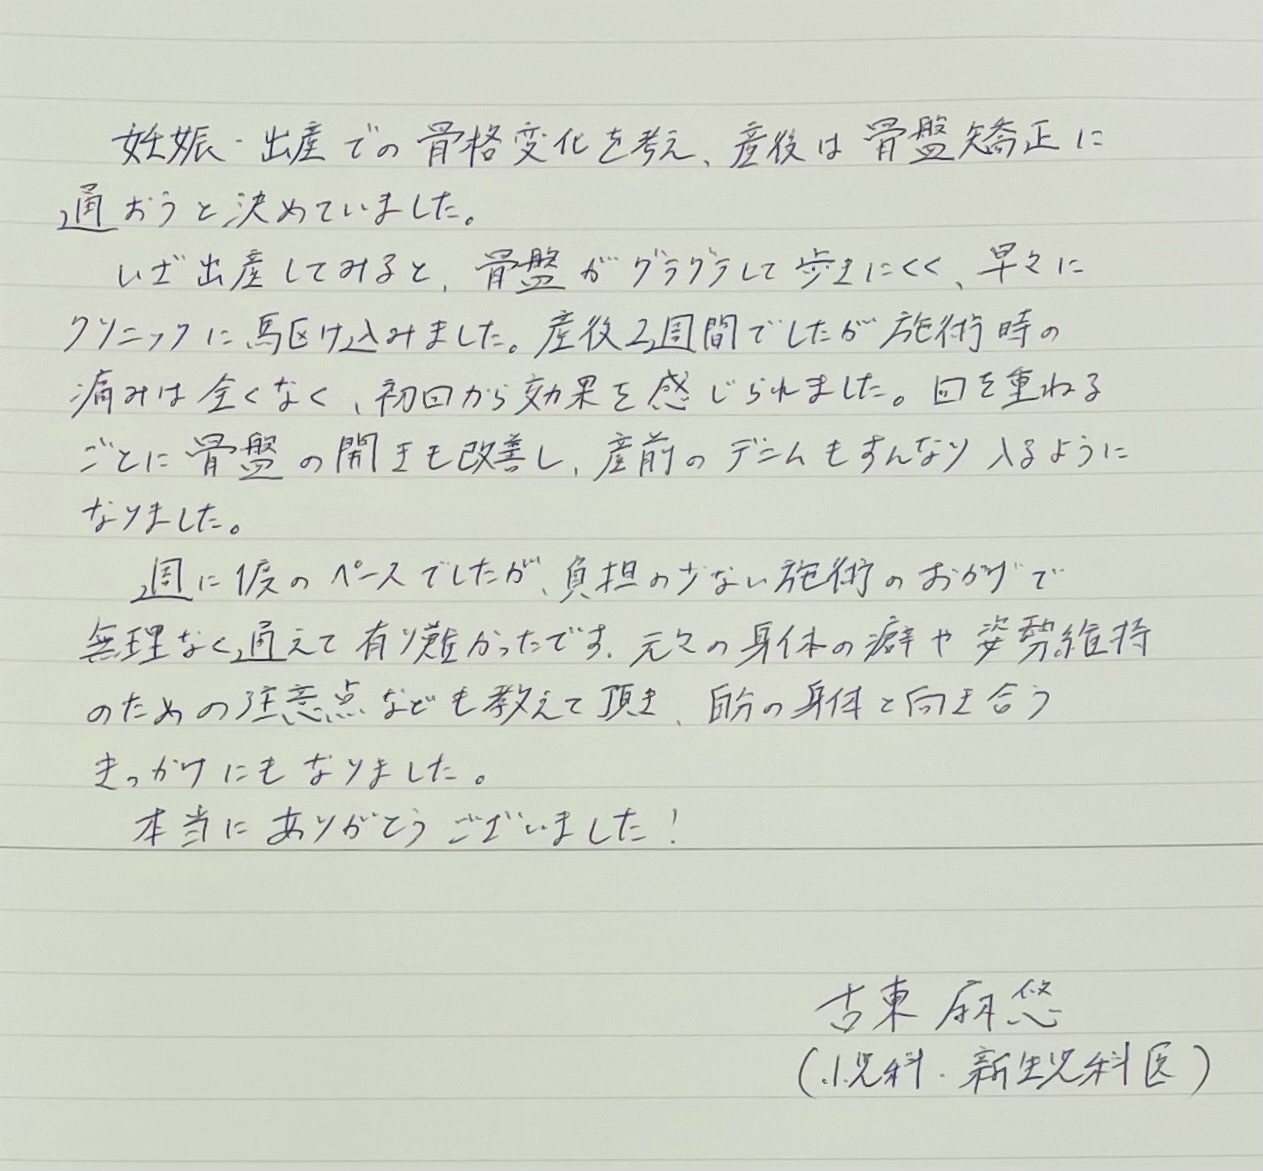 妊娠・出産での骨格変化を考え、産後は骨盤矯正に
通おうと決めていました。
いざ出産してみると、骨盤がグラグラして歩きにくく、早々に
クリニックに駆け込みました。産後2週間でしたが施術時の
痛みは全くなく、初回から効果を感じられました。回を重ねる
ごとに骨盤の開きも改善し、産前のデニムもすんなり入るように
なりました。
週に1度のペースでしたが、負担の少ない施術のおかげで
無理なく通えて有り難かったです。元々の身体の癖や姿勢維持
のための注意点なども教えて頂き、自分の身体と向き合う
きっかけにもなりました。
本当にありがとうございました！
古東麻悠
(小児科・新生児科医)